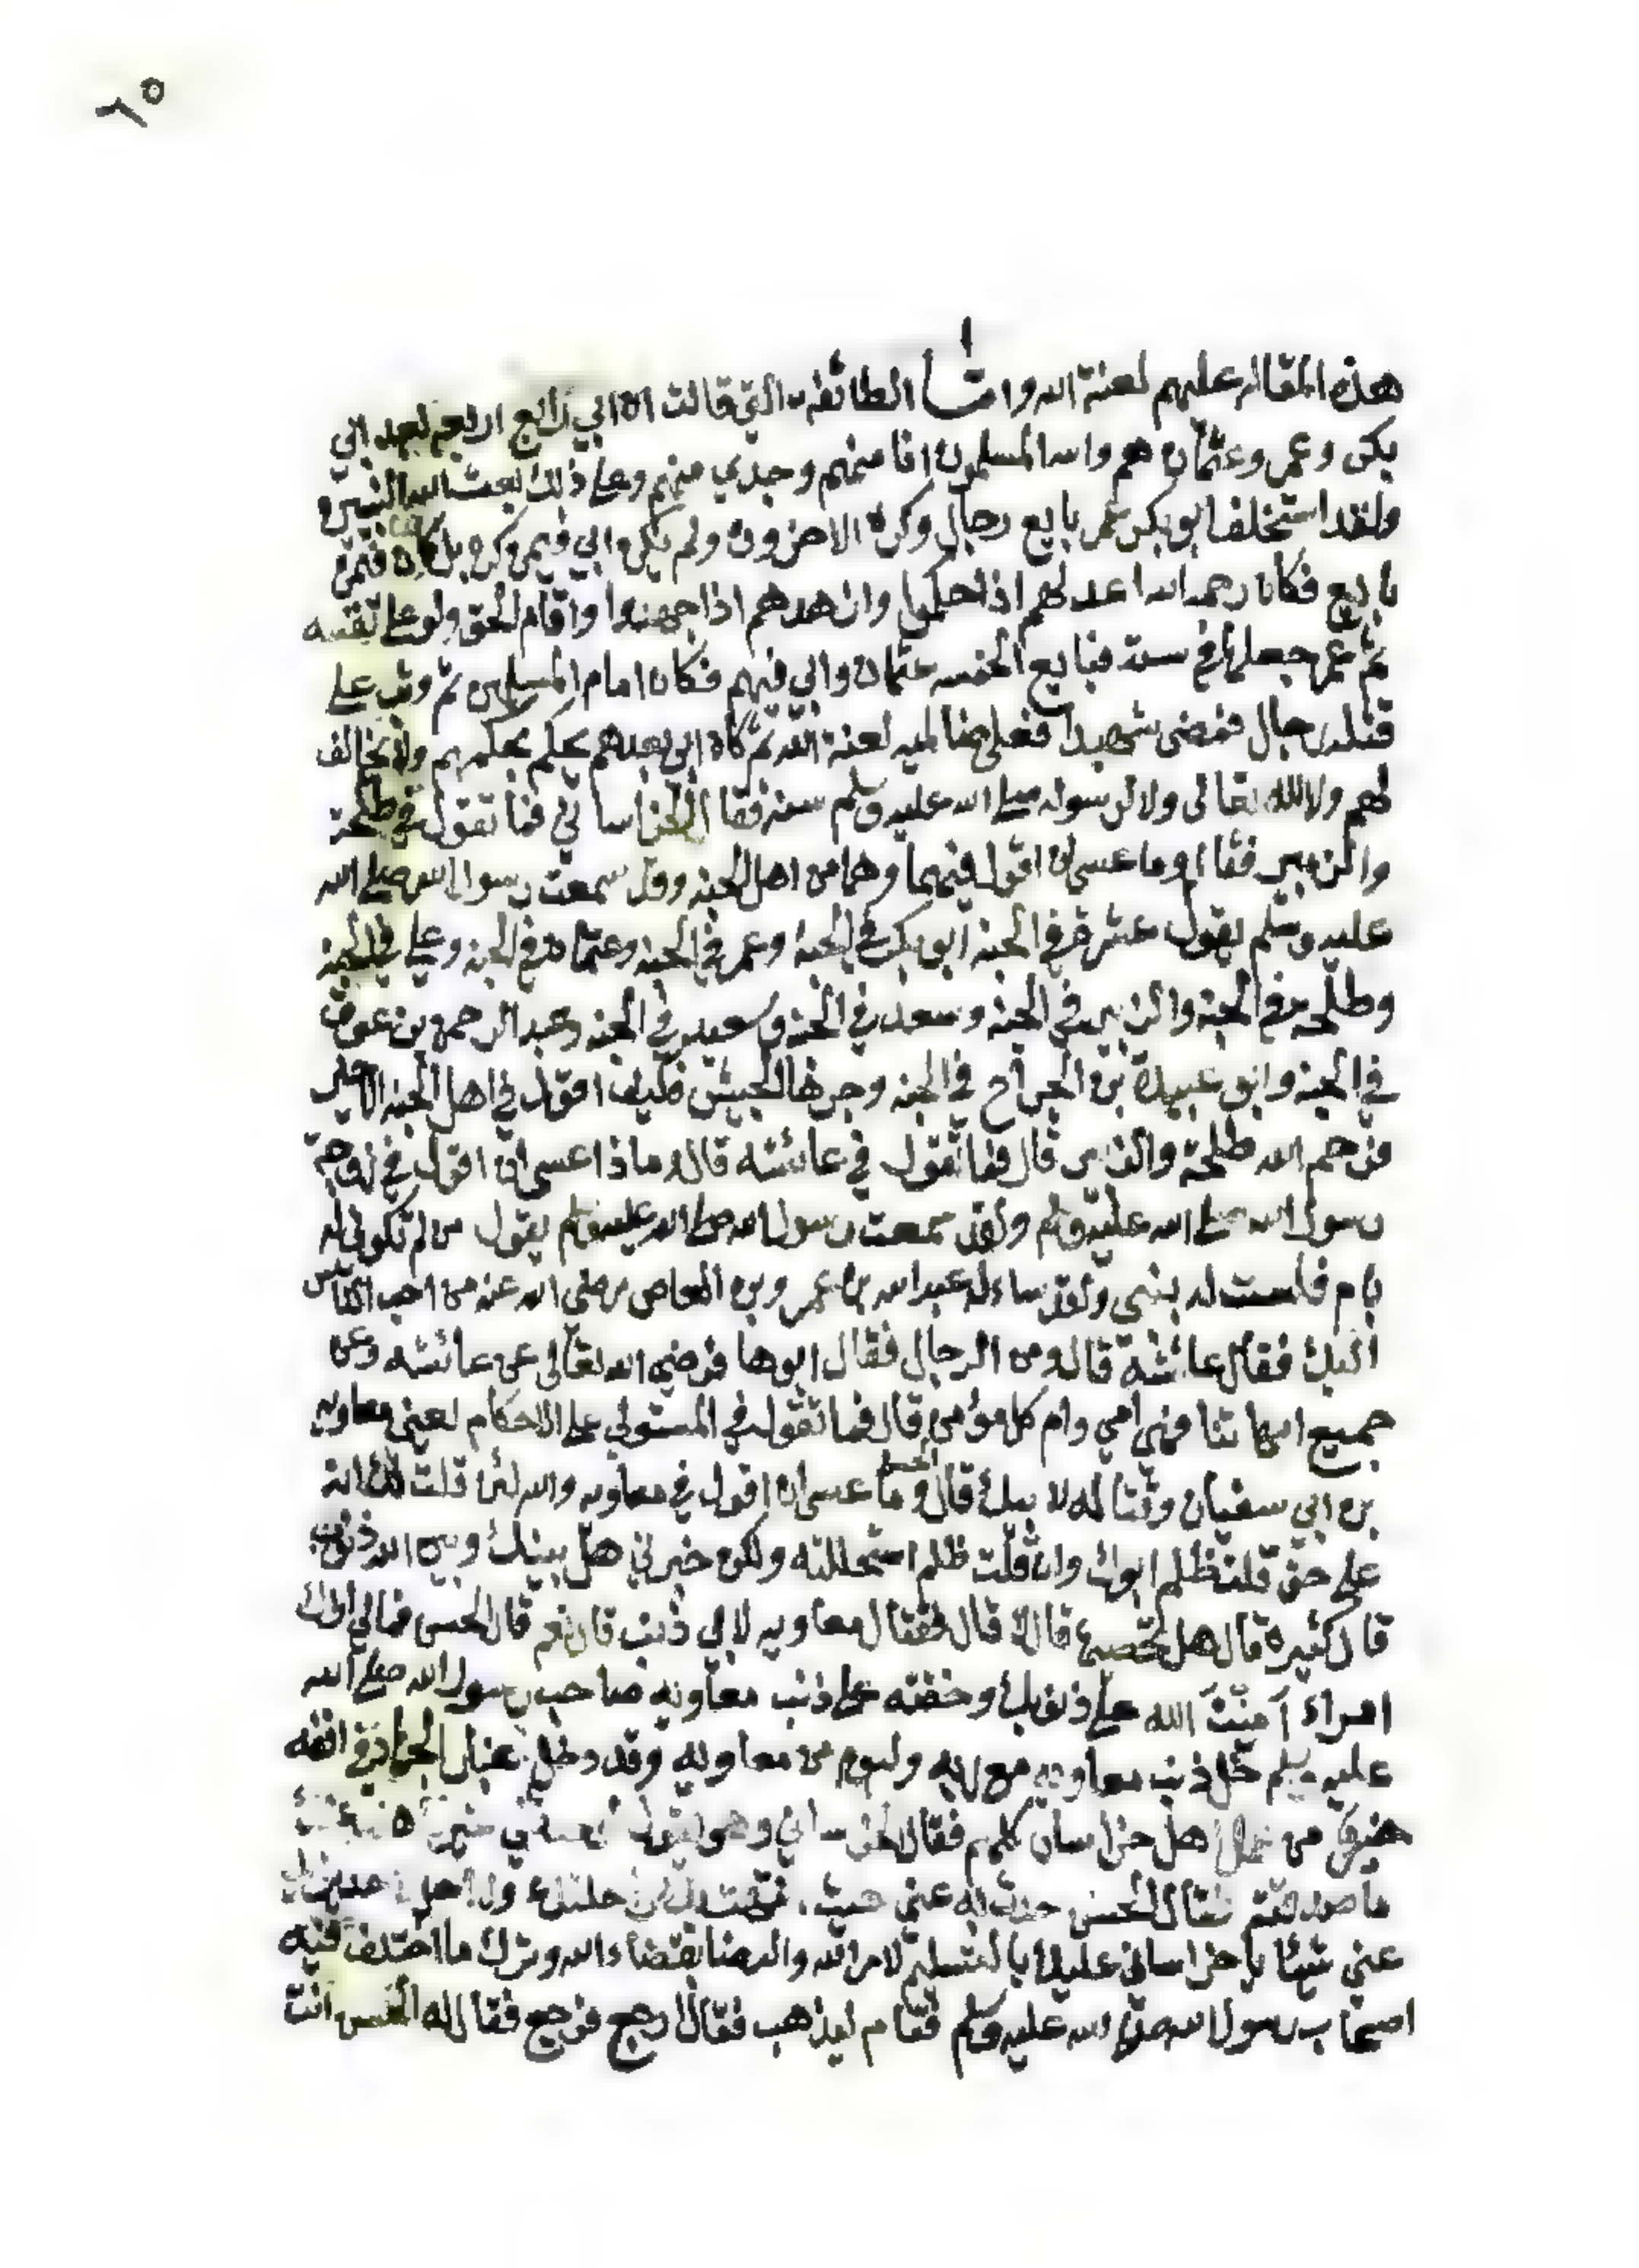 ٦٥
هذه المقاله عليهم لعنة الله واما الطائفه التي قالت ان ابي رابع اربعه بعد ابي
بكر وعمر وعثمان هم واسه المسلمون انا منهم وجدي منهم وعلى ذلك بعث الله
ولقد استخلف ابو بكر عمر بايع رجال وكره الاخرون ولم يكن ابي فيمن كره بل كان فيمن
بايع فكانا رحمه الله اعدلهم اذا حكما وازهدهم اذا واقام الحق ولو على نفسه
ثم عمر جعلها في ستة فبايع الخمسه عثمان وابي فيهم فكان امام المسلمين ثم وثب على
قتله رجال فمضى شهيدا فعلى ظالميه لعنة الله ثم كان ابي بعدهم يحكم بحكمهم ولا يخالف
لهم ولا لله تعالى ولا لرسوله صلى الله عليه وسلم سنه فقال الخراساني فما تقول في طلحة
والزبير فقال وما عسى ان اقول فيهما وهما من اهل الجنه وقد سمعت رسول الله صلى الله
عليه وسلم يقول عشرة في الجنه ابو بكر في الجنه وعمر في الجنه وعثمان في الجنه وعلي في الجنه
وطلحه في الجنه والزبير في الجنه وسعد في الجنه وسعيد في الجنه وعبد الرحمن بن عوف
في الجنه وابو عبيدة بن الجراح في الجنه فكيف اقول في اهل الجنه الا خير
فرحم الله طلحة والزبير قال فما تقول في عائشه قال وماذا عسى ان اقول في زوجة
رسول الله صلى الله عليه وسلم ولقد سمعت رسول الله صلى الله عليه وسلم يقول من لم تكوني له
بام فلست له بنبي ولقد ساءله عبد الله بن عمر وبن العاص رضي الله عنه من احب الناس
اليك فقال عائشة قال ومن الرجال فقال ابوها فرضي الله تعالى عن عائشه وعن
جميع امهاتنا فهي امي وام كل مؤمن قال فما تقول في المستولي على الاحكام يعني معاويه
بن ابي سفيان وقتاله لابيك قال الحسن وما عسى ان اقول في معاويه والله لئن قلت لك انه
على حق قلت ظلم ابوك وان قلت ظلم استحللته ولكن خبرني هل بينك وبين الله ذنوب
قال كثيره قال هل تحصيها قال لا قال فقتال معاويه لابي ذنب قال نعم قال الحسن فما لي اراك
امراء آمِنْتَ الله على ذنوبك وخفته على ذنب معاويه صاحب رسول الله صلى الله
عليه وسلم خل ذنب معاويه مع ربه وليوم من معاويه وقد دخل غبار الجهاد في انفه
خير من اهل خراسان كلهم فقال الخراساني وهو يقول
ما فقال الحسن حدث به عني حيث
عني شيئا يا خراساني عليك بالتسليم لامر الله والرضا بقضاء الله وترك ما اختلف فيه
اصحاب رسول الله صلى الله عليه وسلم فقام ليذهب فقال ارجع فرجع فقال له الحسن انت